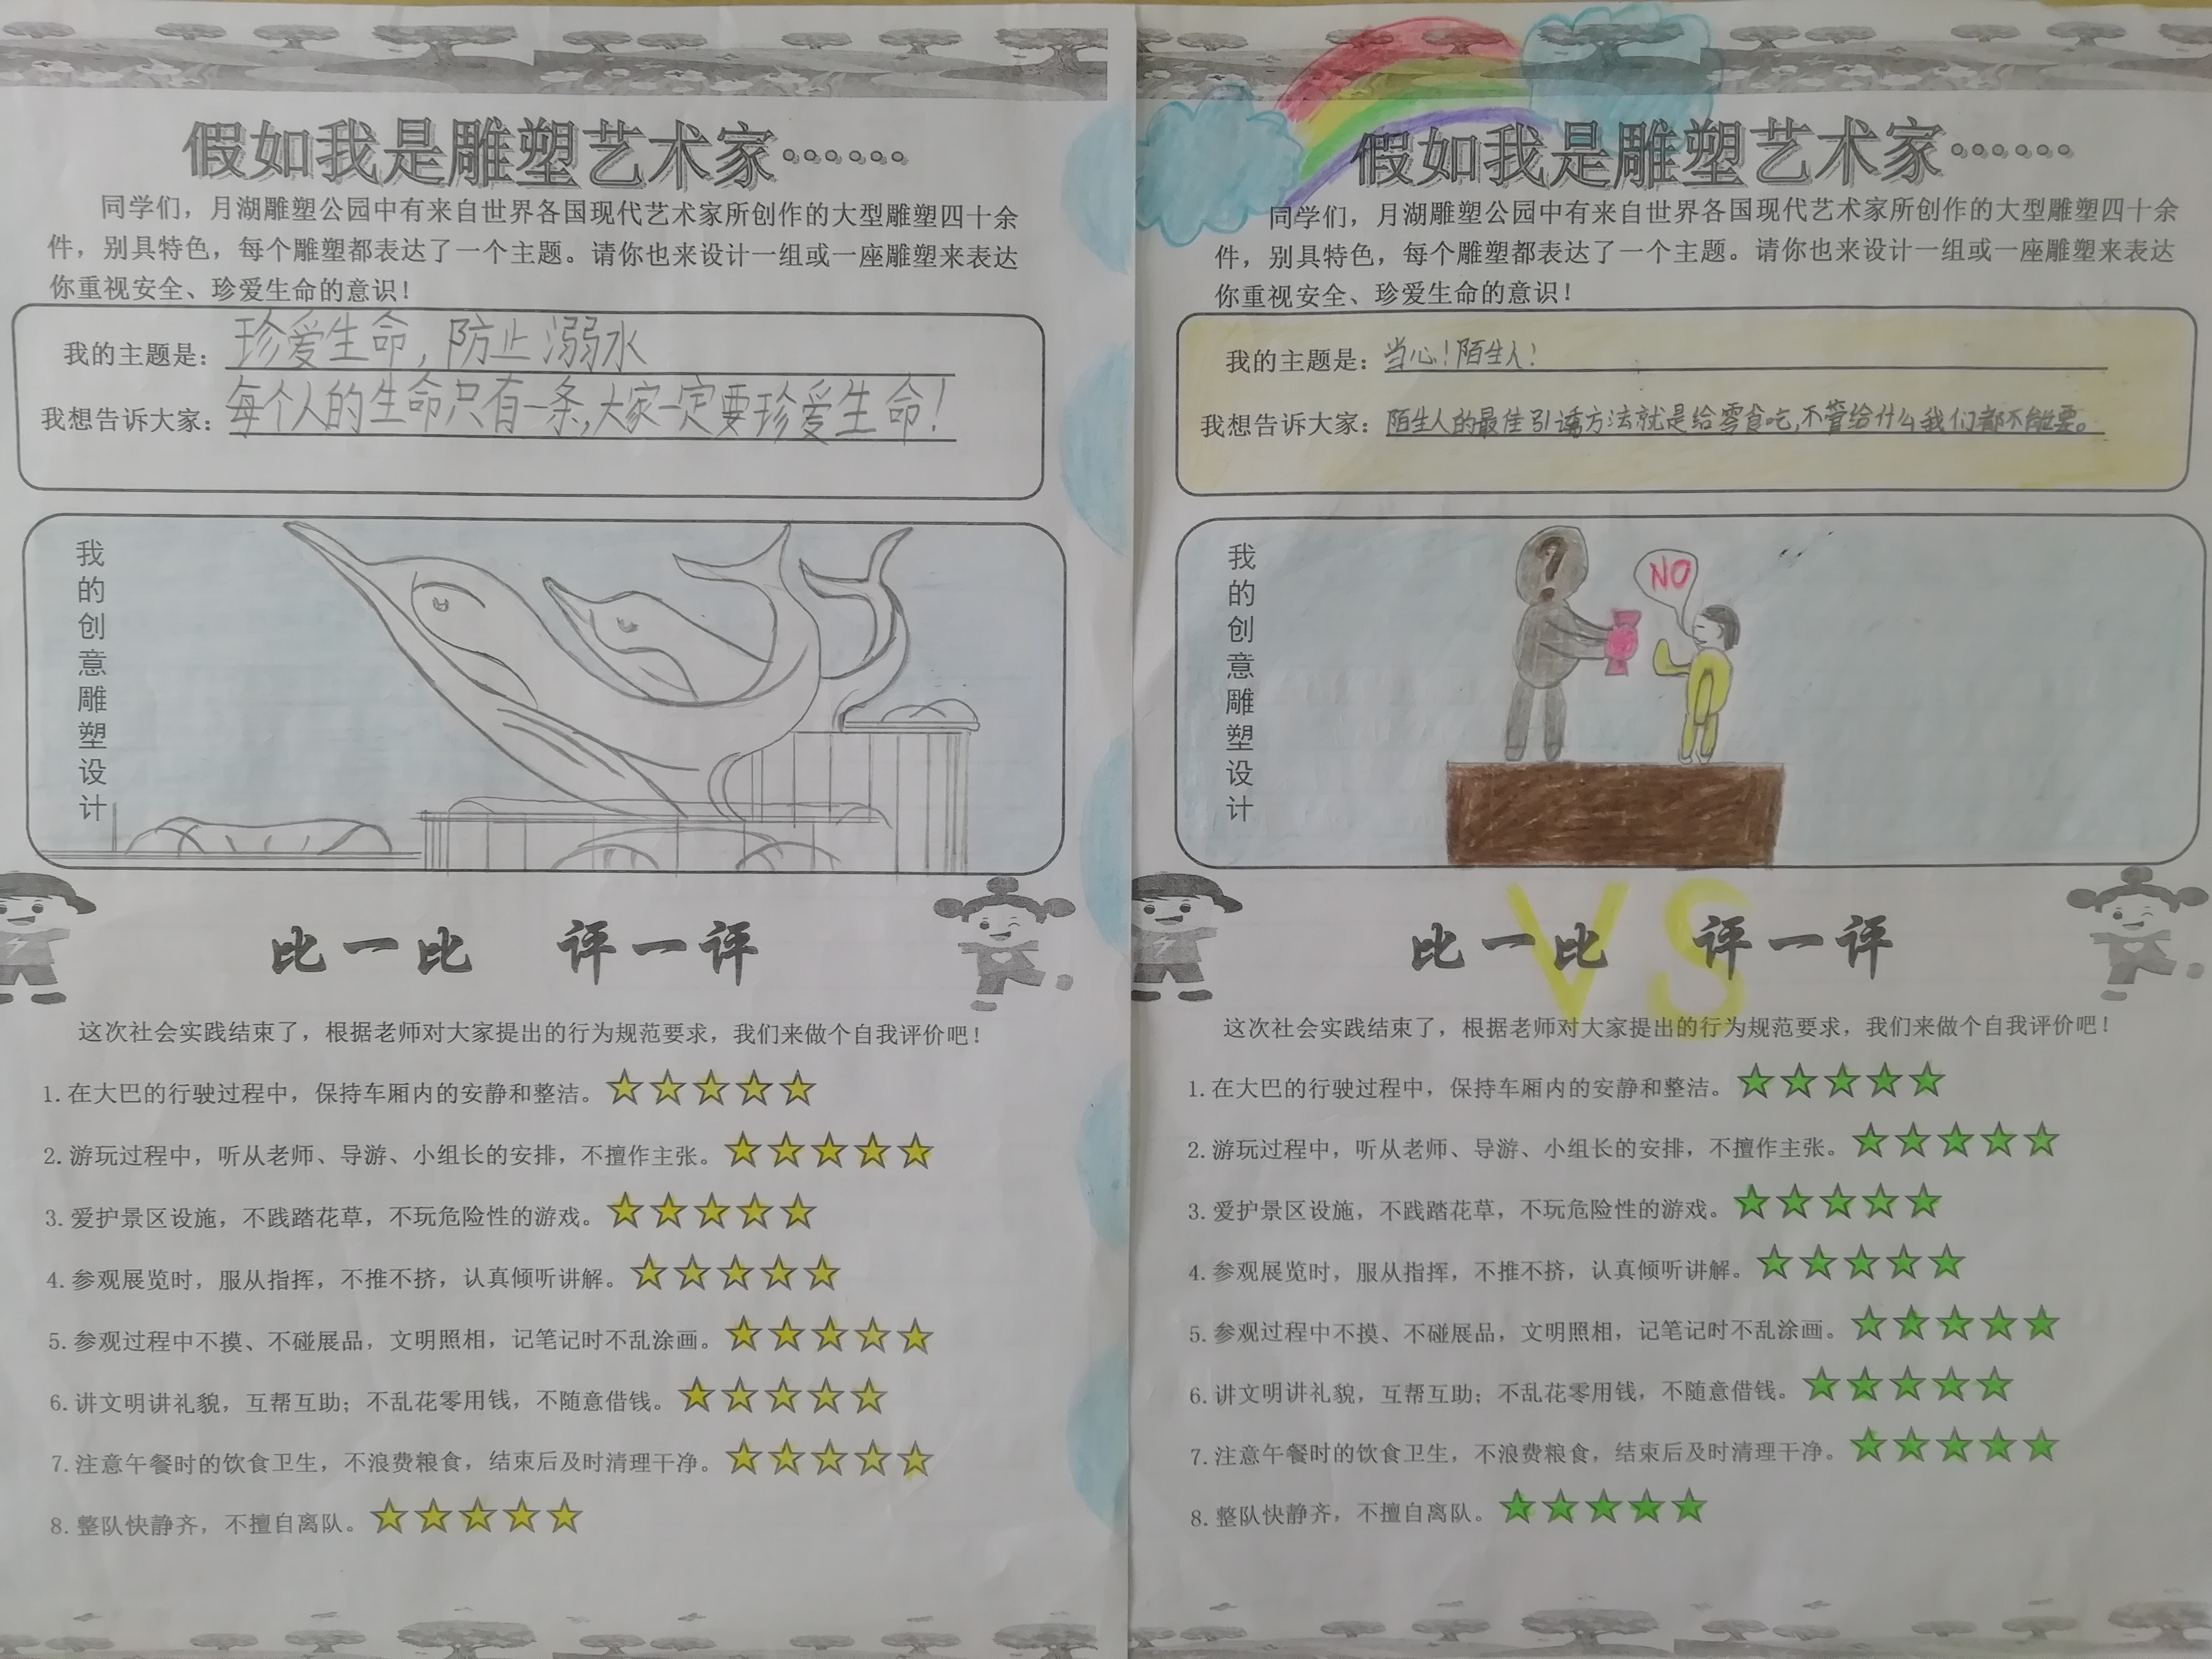 假如我是雕塑艺术家······
同学们，月湖雕塑公园中有来自世界各国现代艺术家所创作的大型雕塑四十余
件，别具特色，每个雕塑都表达了一个主题。请你也来设计一组或一座雕塑来表达
你重视安全、珍爱生命的意识！
我的主题是：珍爱生命，防止溺水
我想告诉大家：每个人的生命只有一条，大家一定要珍爱生命！
我的创意雕塑设计
比一比 评一评
这次社会实践结束了，根据老师对大家提出的行为规范要求，我们来做个自我评价吧！
1.在大巴的行驶过程中，保持车厢内的安静和整洁。☆☆☆☆☆
2.游玩过程中，听从老师、导游、小组长的安排，不擅作主张。☆☆☆☆☆
3.爱护景区设施，不践踏花草，不玩危险性的游戏。☆☆☆☆☆
4.参观展览时，服从指挥，不推不挤，认真倾听讲解。☆☆☆☆☆
5.参观过程中不摸、不碰展品，文明照相，记笔记时不乱涂画。☆☆☆☆☆
6.讲文明讲礼貌，互帮互助；不乱花零用钱，不随意借钱。☆☆☆☆☆
7.注意午餐时的饮食卫生，不浪费粮食，结束后及时清理干净。☆☆☆☆☆
8.整队快静齐，不擅自离队。☆☆☆☆☆
假如我是雕塑艺术家······
同学们，月湖雕塑公园中有来自世界各国现代艺术家所创作的大型雕塑四十余
件，别具特色，每个雕塑都表达了一个主题。请你也来设计一组或一座雕塑来表达
你重视安全、珍爱生命的意识！
我的主题是：当心！陌生人！
我想告诉大家：陌生人的最佳引诱方法就是给零食吃，不管给什么我们都不能要。
我的创意雕塑设计
?
NO
VS
比一比 评一评
这次社会实践结束了，根据老师对大家提出的行为规范要求，我们来做个自我评价吧！
1.在大巴的行驶过程中，保持车厢内的安静和整洁。☆☆☆☆☆
2.游玩过程中，听从老师、导游、小组长的安排，不擅作主张。☆☆☆☆☆
3.爱护景区设施，不践踏花草，不玩危险性的游戏。☆☆☆☆☆
4.参观展览时，服从指挥，不推不挤，认真倾听讲解。☆☆☆☆☆
5.参观过程中不摸、不碰展品，文明照相，记笔记时不乱涂画。☆☆☆☆☆
6.讲文明讲礼貌，互帮互助；不乱花零用钱，不随意借钱。☆☆☆☆☆
7.注意午餐时的饮食卫生，不浪费粮食，结束后及时清理干净。☆☆☆☆☆
8.整队快静齐，不擅自离队。☆☆☆☆☆